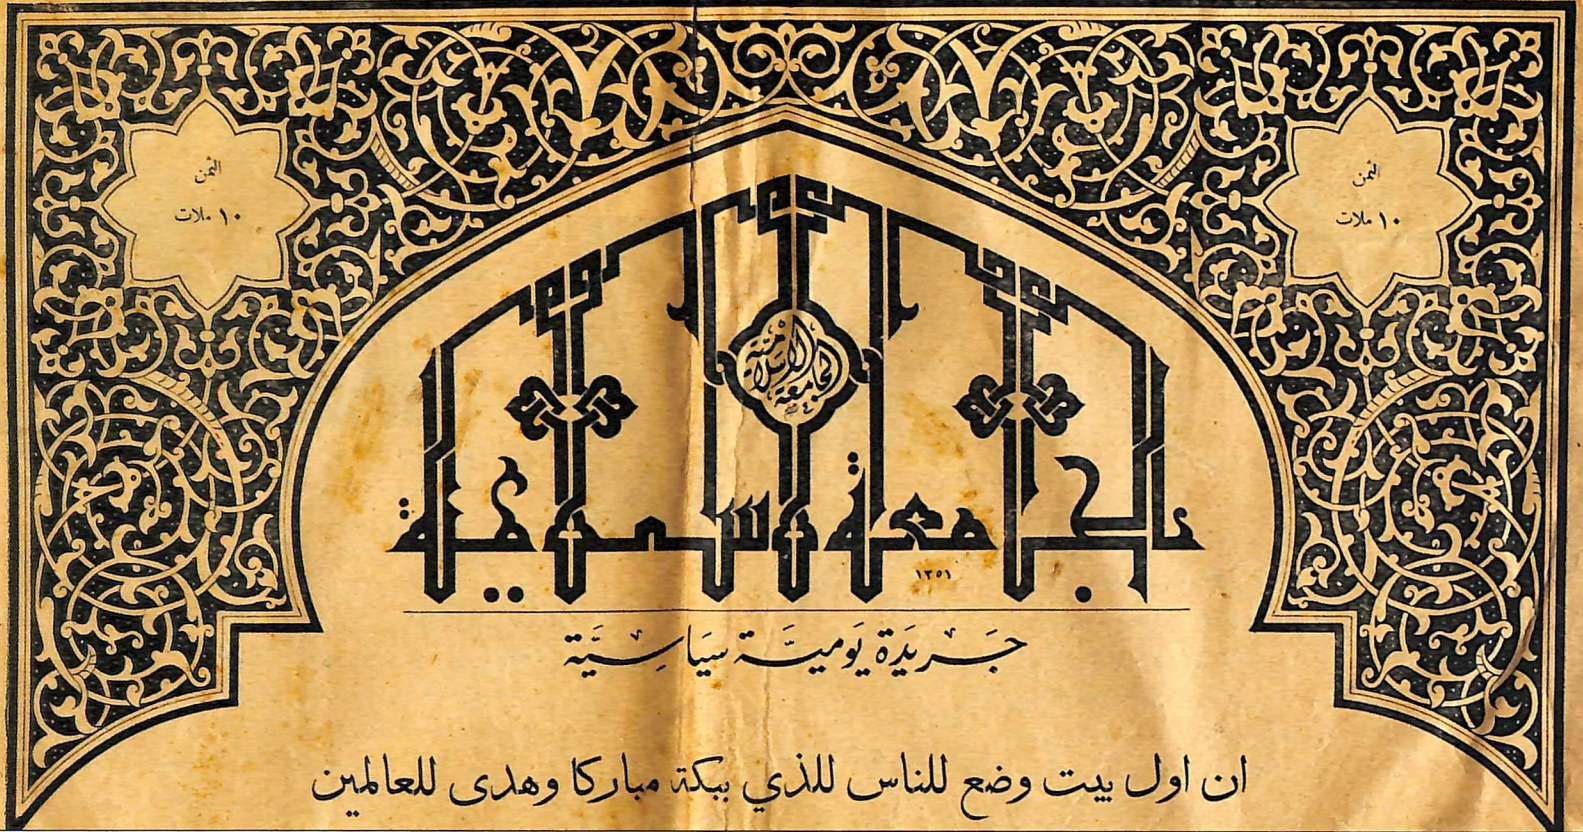 الثمن
١٠ ملات
الثمن
١٠ ملات
الجامعة الاسلامية
الجامعة الاسلامية
١٣٥١
جَريَدة يَوميَّة سيَاسِيَّة
ان اول بيت وضع للناس للذي ببكة مباركا وهدى للعالمين